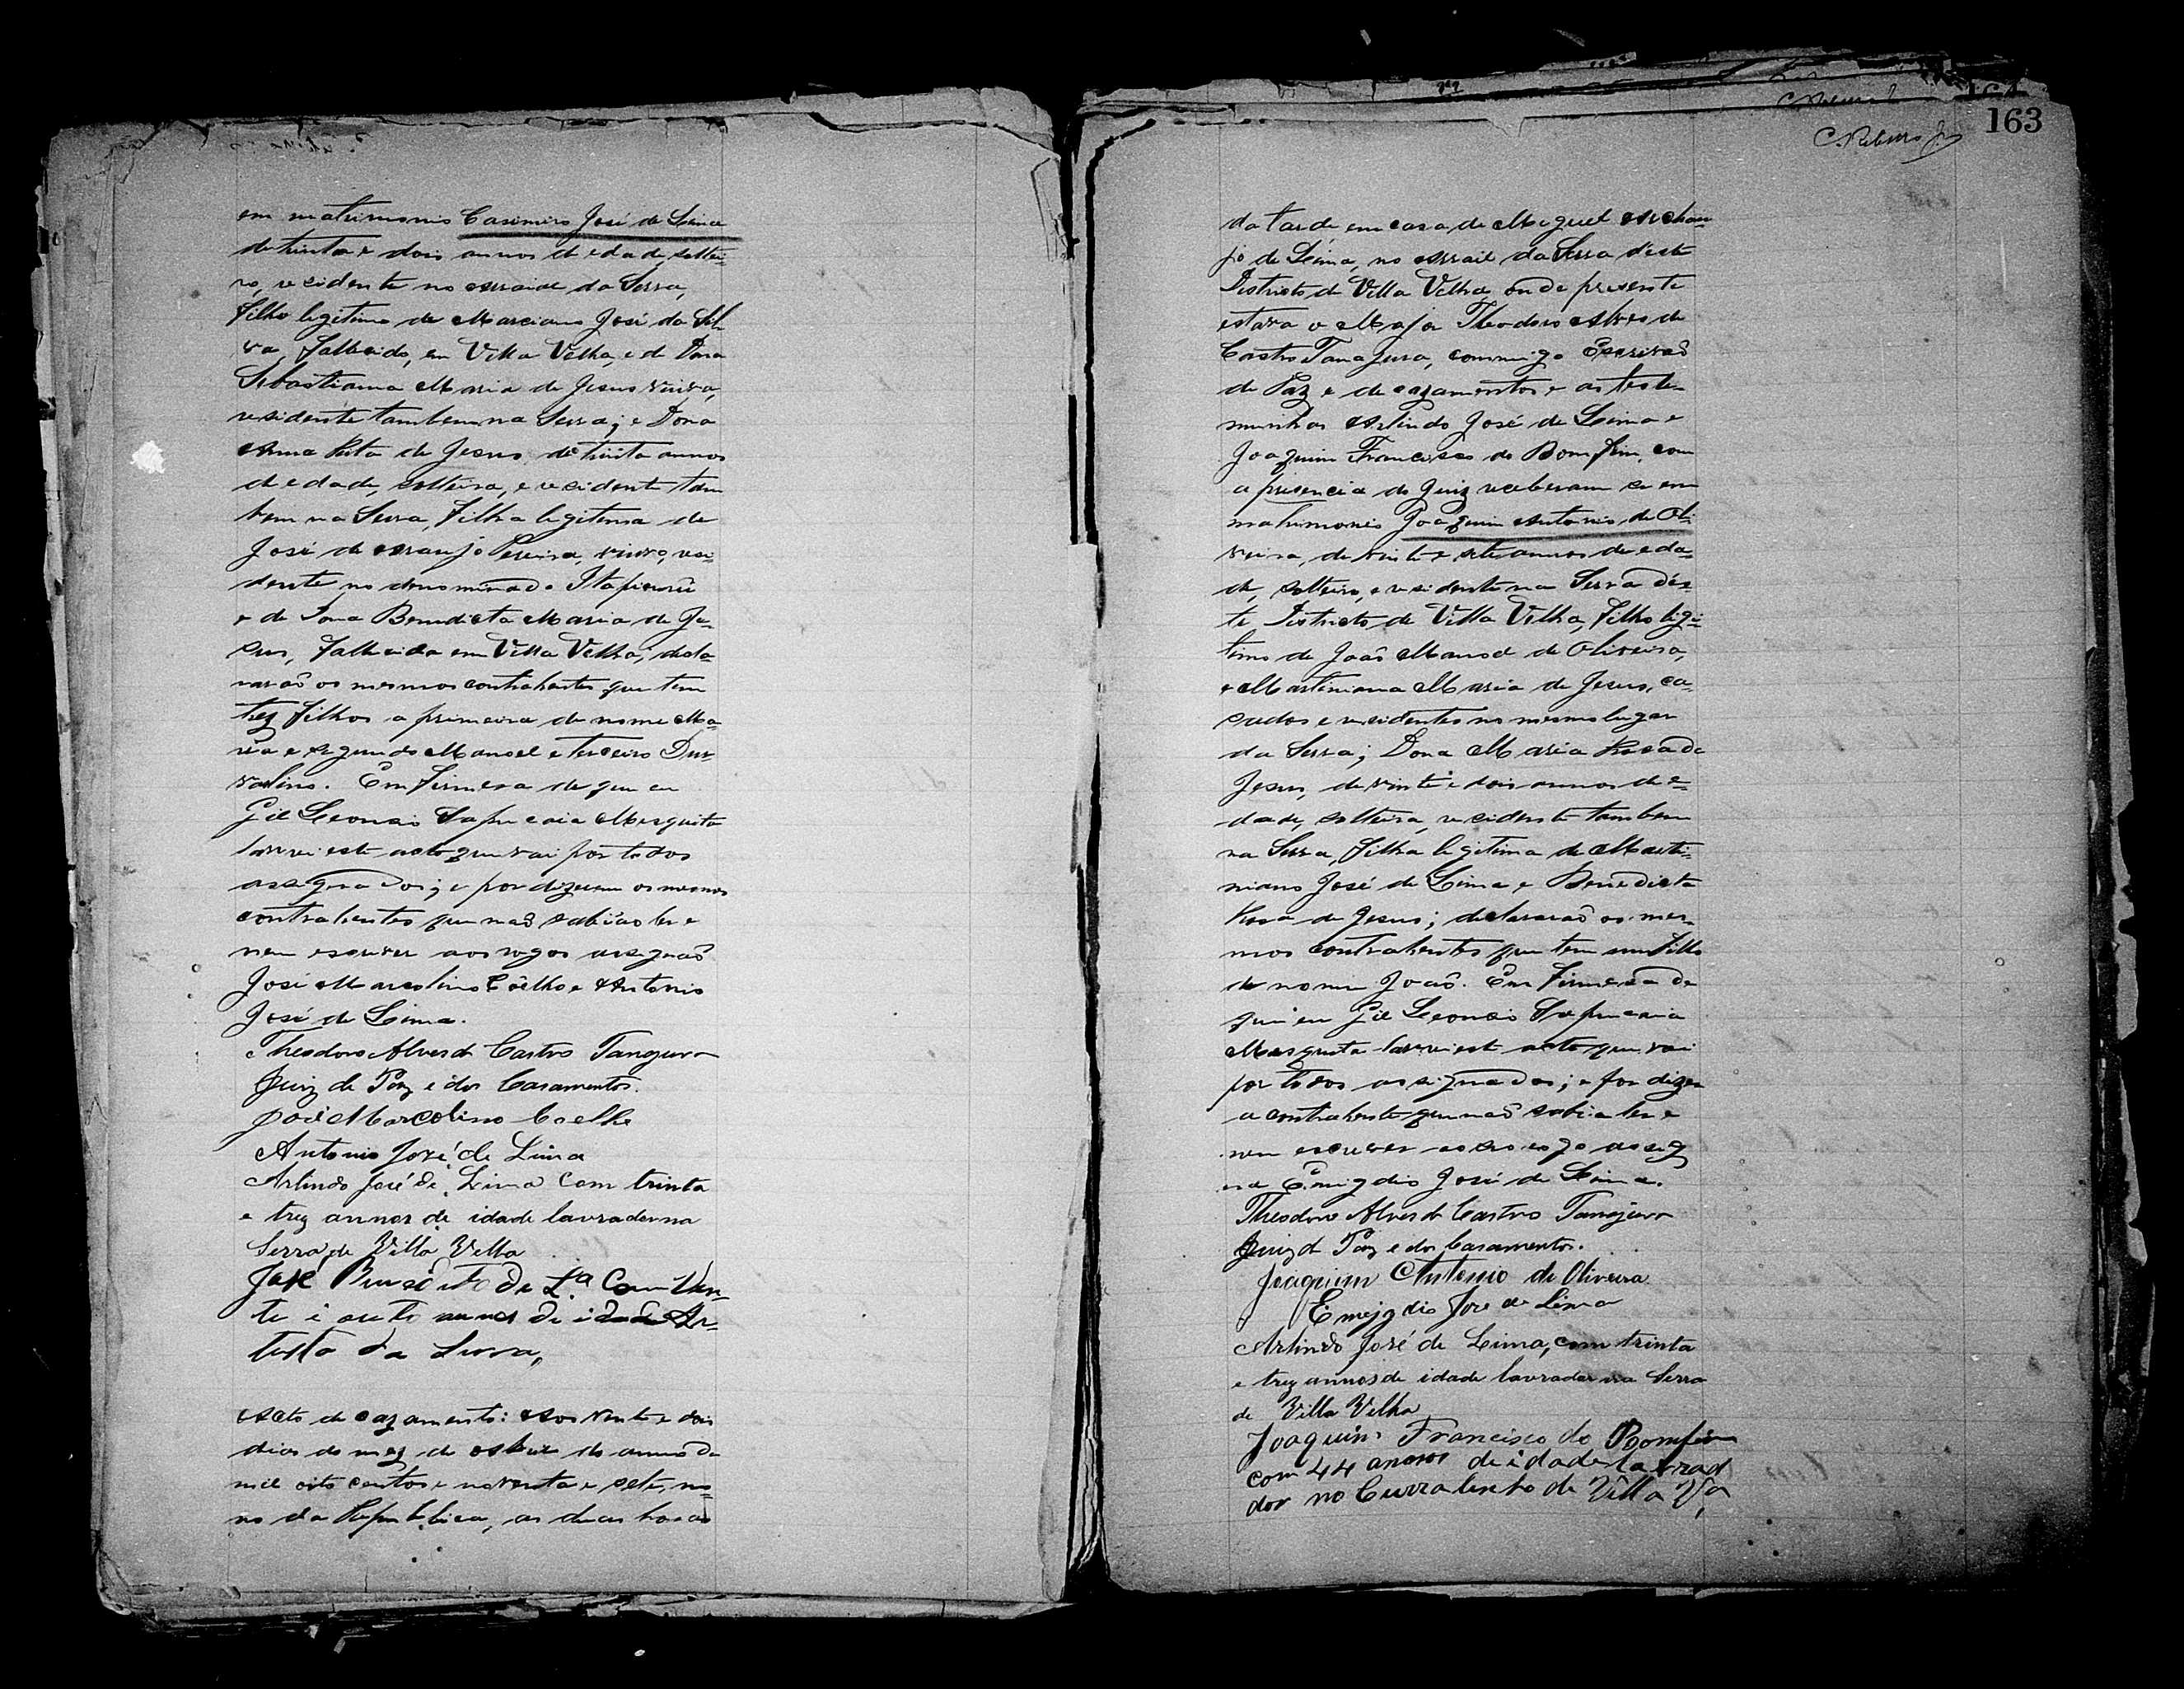 em matrimonio Casimiro José de Lima
de trinta e dois annos de edade, soltei-
ro, residente no arraial da Serra,
filho legitimo de Marciano José da Sil-
va, fallecido, em Villa Velha, e de Dona
Sebastianna Maria de Jesus viuva,
residente tambem na Serra; e Dona
Anna Rita de Jesus, de trinta annos
de edade, solteira, e residente tam
bem na Serra, filha legitima de
José de Araujo Pereira, viuvo, resi-
dente no denominado Itapicurú
e de Dona Benedicta Maria de Je-
sus, fallecida em Villa Velha; decla-
rarão os mesmos contrahentes que tem
trez filhos a primeira de nome Ma-
ria e segundo Manoel e terceiro Dur-
valino. Em firmesa de que eu
Gil Leoncio Sapucaia Mesquita
lavrei este acto que vai por todos
assignados; e por dizerem os mesmos
contrahentes que não sabião ler e
nem escrever aos rogos assignão
José Marcolino Coêlho e Antonio
José de Lima.
Theodoro Alves de Castro Tanajura
Juiz de Paz e dos Casamentos.
José Marcolino Coelho
Antonio José de Lima
Arlindo José de Lima com trinta
e trez annos de idade lavrador na
Serra de Villa Velha
José Benedito de La. Com Vin-
te i outo annos di idade Ar-
tista da Serra,
Acto de cazamento: Aos vente e dois
dias do mez de do anno de
mil oito centos e noventa e sete, no-
no da Republica, as duas horas
163
C. Ribeiro Jr
da tarde em casa de Miguel Archan-
jo de Lima, no arraial da Serra deste
Districto de Villa Velha onde presente
estava o Major Theodoro Alves de
Castro Tanajura, commigo Escrivão
de Paz e de cazamentos e as teste-
munhas Arlindo José de Lima e
Joaquim Francisco do Bomfim, com
a presencia do Juiz receberam se em
matrimonio Joaquim Antonio de Oli-
veira, de vinte e sete annos de eda-
de, solteiro, e residente na Serra des-
te Districto de Villa Velha, filho legi-
timo de João Manoel de Oliveira,
e Martiniana Maria de Jesus, ca-
sados e residentes no mesmo lugar
da Serra; Dona Maria Rosa de
Jesus, de vinte e dois annos de e-
dade, solteira, residente tambem
na Serra, filha legitima de Marti-
niano José de Lima e Benedicta
Rosa de Jesus; declararão os mes-
mos contrahentes que tem um filho
de nome João. Em firmesa de
que eu Gil Leoncio Sapucaia
Mesquita lavrei este acto que vai
por todos assignados; e por dizer
a contrahente que não sabia ler e
nem escrever ao seo rogo assig
na Emigdio José de Lima.
Theodoro Alves de Castro Tanajura
Juiz de Paz e dos Casamentos.
Joaquim Antonio de Oliveira
Emigdio José de Lima
Arlindo José de Lima, com trinta
e trez annos de idade lavrador na Serra
de Villa Velha
Joaquim Francisco do Bomfim
com 44 annos de idade lavrad
dor no Curralinho de Villa Va,